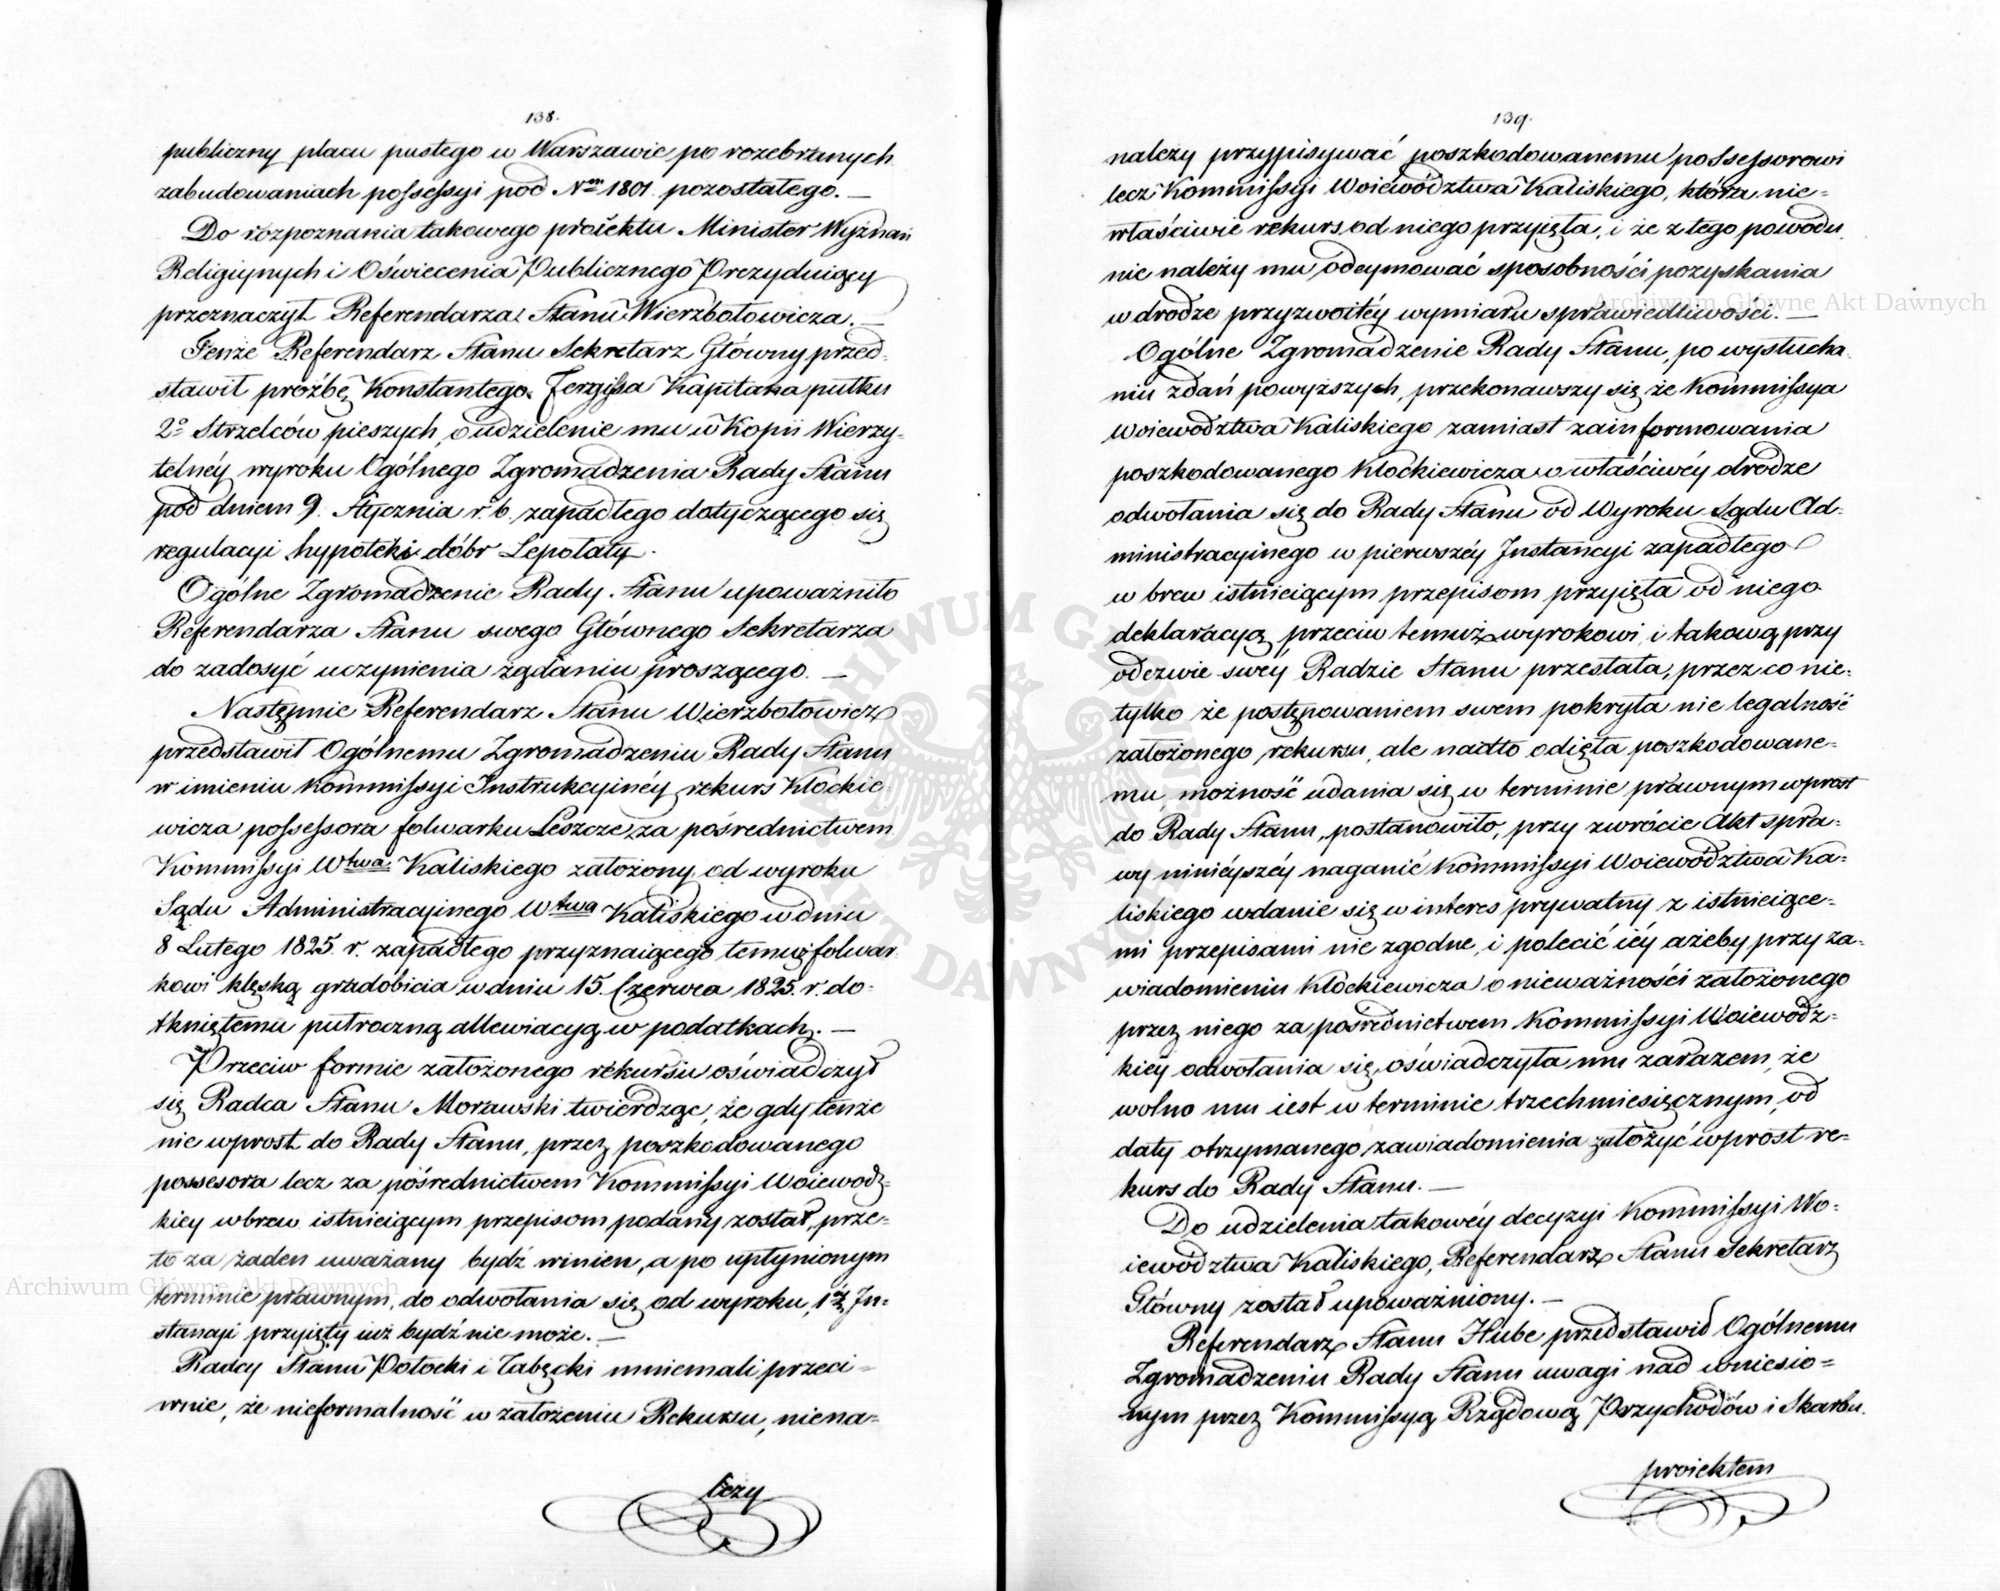 138.
publiczny placu pustego w Warszawie po rozebranych
zabudowaniach possessyi pod Nrm 1801. pozostałego. —
Do rozpoznania takowego proiektu Minister Wyznań
Religiynych i Oświecenia Publicznego Prezyduiący
przeznaczył Referendarza Stanu Wierzbołowicza. —
Tenże Referendarz Stanu Sekretarz Główny przed-
stawił proźbę Konstantego Kapitana pułku
2o Strzelców pieszych, o udzielenie mu w Kopii Wierzy-
telnéy wyroku Ogólnego Zgromadzenia Rady Stanu
pod dniem 9. Stycznia r. b. zapadłego dotyczącego się
regulacyi hypoteki dóbr Łepołaty.
Ogólne Zgromadzenie Rady Stanu upoważniło
Referendarza Stanu swego Głównego Sekretarza
do zadosyć uczynienia żądaniu proszącego. —
Następnie Referendarz Stanu Wierzbołowicz
przedstawił Ogólnemu Zgromadzeniu Rady Stanu
w imieniu Kommissyi Instrukcyinéy rekurs Kłockie-
wicza possessora folwarku Leszcze, za pośrednictwem
Kommissyi Wtwa Kaliskiego założony od wyroku
Sądu Administracyinego Wtwa Kaliskiego w dniu
8 Lutego 1825. r. zapadłego przyznaiącego temuż folwar-
kowi klęską gradobicia w dniu 15. Czerwca 1825. r. do-
tkniętemu putroczną allewiacyą w podatkach. —
Przeciw formie założonego rekursu oświadczył
się Radca Stanu Morawski twierdząc, że gdy tenże
nie wprost do Rady Stanu, przez poszkodowanego
possesora lecz za pośrednictwem Kommissyi Woiewodz-
kiey wbrew istnieiącym przepisom podany został, prze-
to za żaden uważany bydź winien, a po upłynionym
terminie prawnym, do odwołania się od wyroku, 1éy In-
stancyi przyięty iuż bydź nie może. —
Radcy Stanu Potocki i Łabęcki mniemali przeci-
wnie, że nieformalność w założeniu Rekursu, niena-
leży
139.
należy przypisywać poszkodowanemu possessorowi
lecz Kommissyi Woiewództwa Kaliskiego, która nie-
właściwie rekurs od niego przyięła, i że z tego powodu
nie należy mu odeymować sposobności pozyskania
w drodze przyzwoitéy wymiaru sprawiedliwości. —
Ogólne Zgromadzenie Rady Stanu, po wysłucha-
niu zdań powyższych, przekonawszy się że Kommissya
Woiewództwa Kaliskiego zamiast zainformowania
poszkodowanego Kłockiewicza o właściwéy drodze
odwołania się do Rady Stanu od Wyroku Sądu Ad-
ministracyinego w pierwszéy Instancyi zapadłego
w brew istnieiącym przepisom przyięła od niego
deklaracyą przeciw temuż wyrokowi, i takową przy
odezwie swéy Radzie Stanu przesłała, przez co nie-
tylko że postępowaniem swem pokryła nie legalność
założonego rekursu, ale nadto odięła poszkodowane-
mu, możność udania się w terminie prawnym wprost
do Rady Stanu, postanowiło, przy zwrócie Akt spra-
wy ninieyszéy naganić Kommissyi Woiewództwa Ka-
liskiego wdanie się w interes prywatny z istnieiące-
mi przepisami nie zgodne, i polecić iéy ażeby przy za-
wiadomieniu Kłockiewicza o nieważności założonego
przez niego za pośrednictwem Kommissyi Woiewodz-
kiéy odwołania się, oświadczyła mu zarazem, że
wolno mu iest w terminie trzechmiesięcznym, od
daty otrzymanego zawiadomienia założyć wprost re-
kurs do Rady Stanu. —
Do udzielenia takowéy decyzyi Kommissyi Wo-
iewództwa Kaliskiego, Referendarz Stanu Sekretarz
Główny został upoważniony. —
Referendarz Stanu Hube przedstawił Ogólnemu
Zgromadzeniu Rady Stanu uwagi nad wniesio-
nym przez Kommissyą Rządową Przychodów i Skarbu.
proiektem
Archiwum Główne Akt Dawnych
Archiwum Główne Akt Dawnych
ARCHIWUM GŁÓWNE AKT DAWNYCH